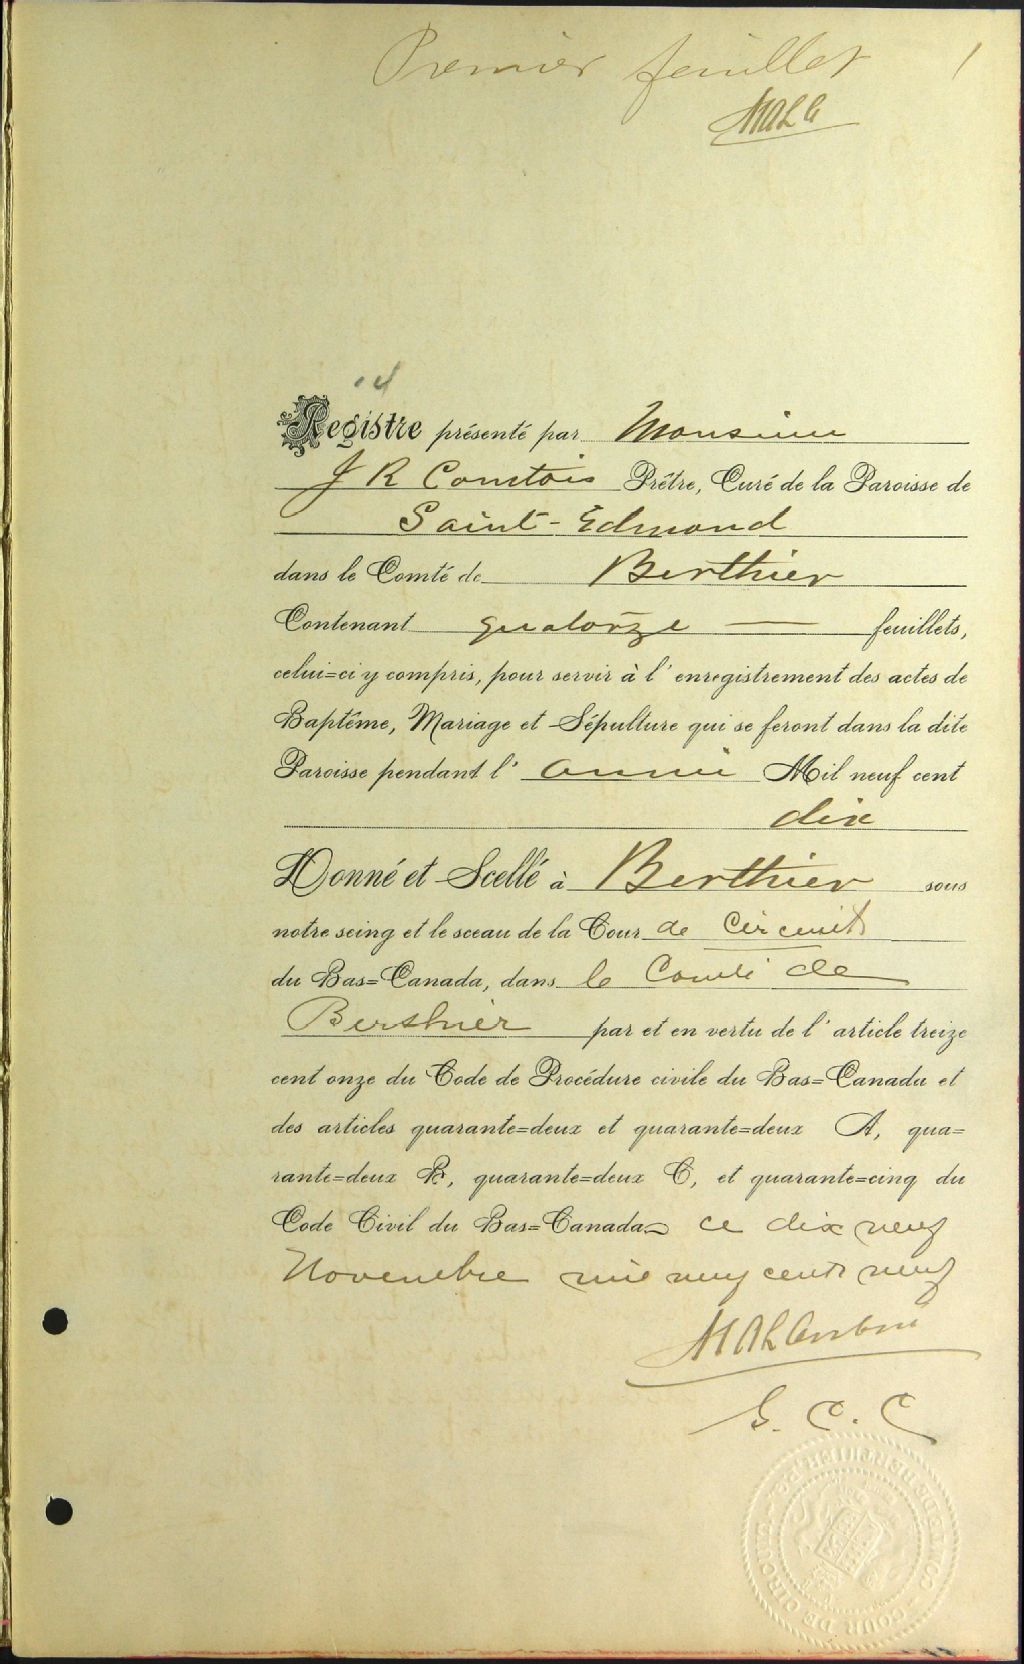 Premier feuillet 1
14
Registre présenté par Monsieur
J R Comtois Prêtre, Curé de la Paroisse de
Saint-Edmond
dans le Comté de Berthier
Contenant quatorze feuillets,
celui=ci y compris, pour servir à l'enregistrement des actes de
Baptême, Mariage et Sépulture qui se feront dans la dite
Paroisse pendant l'année Mil neuf cent
dix
Donné et Scellé à Berthier sous
notre seing et le sceau de la Cour de Circuit
du Bas=Canada, dans le Comté de
Berthier par et en vertu de l'article treize
cent onze du Code de Procédure civile du Bas=Canada et
des articles quarante=deux et quarante=deux A, qua=
rante=deux B, quarante=deux C, et quarante=cinq du
Code Civil du Bas=Canada ce dix neuf
Novembre mil neuf cent neuf
G. C. C
COUR DE CIRCUIT